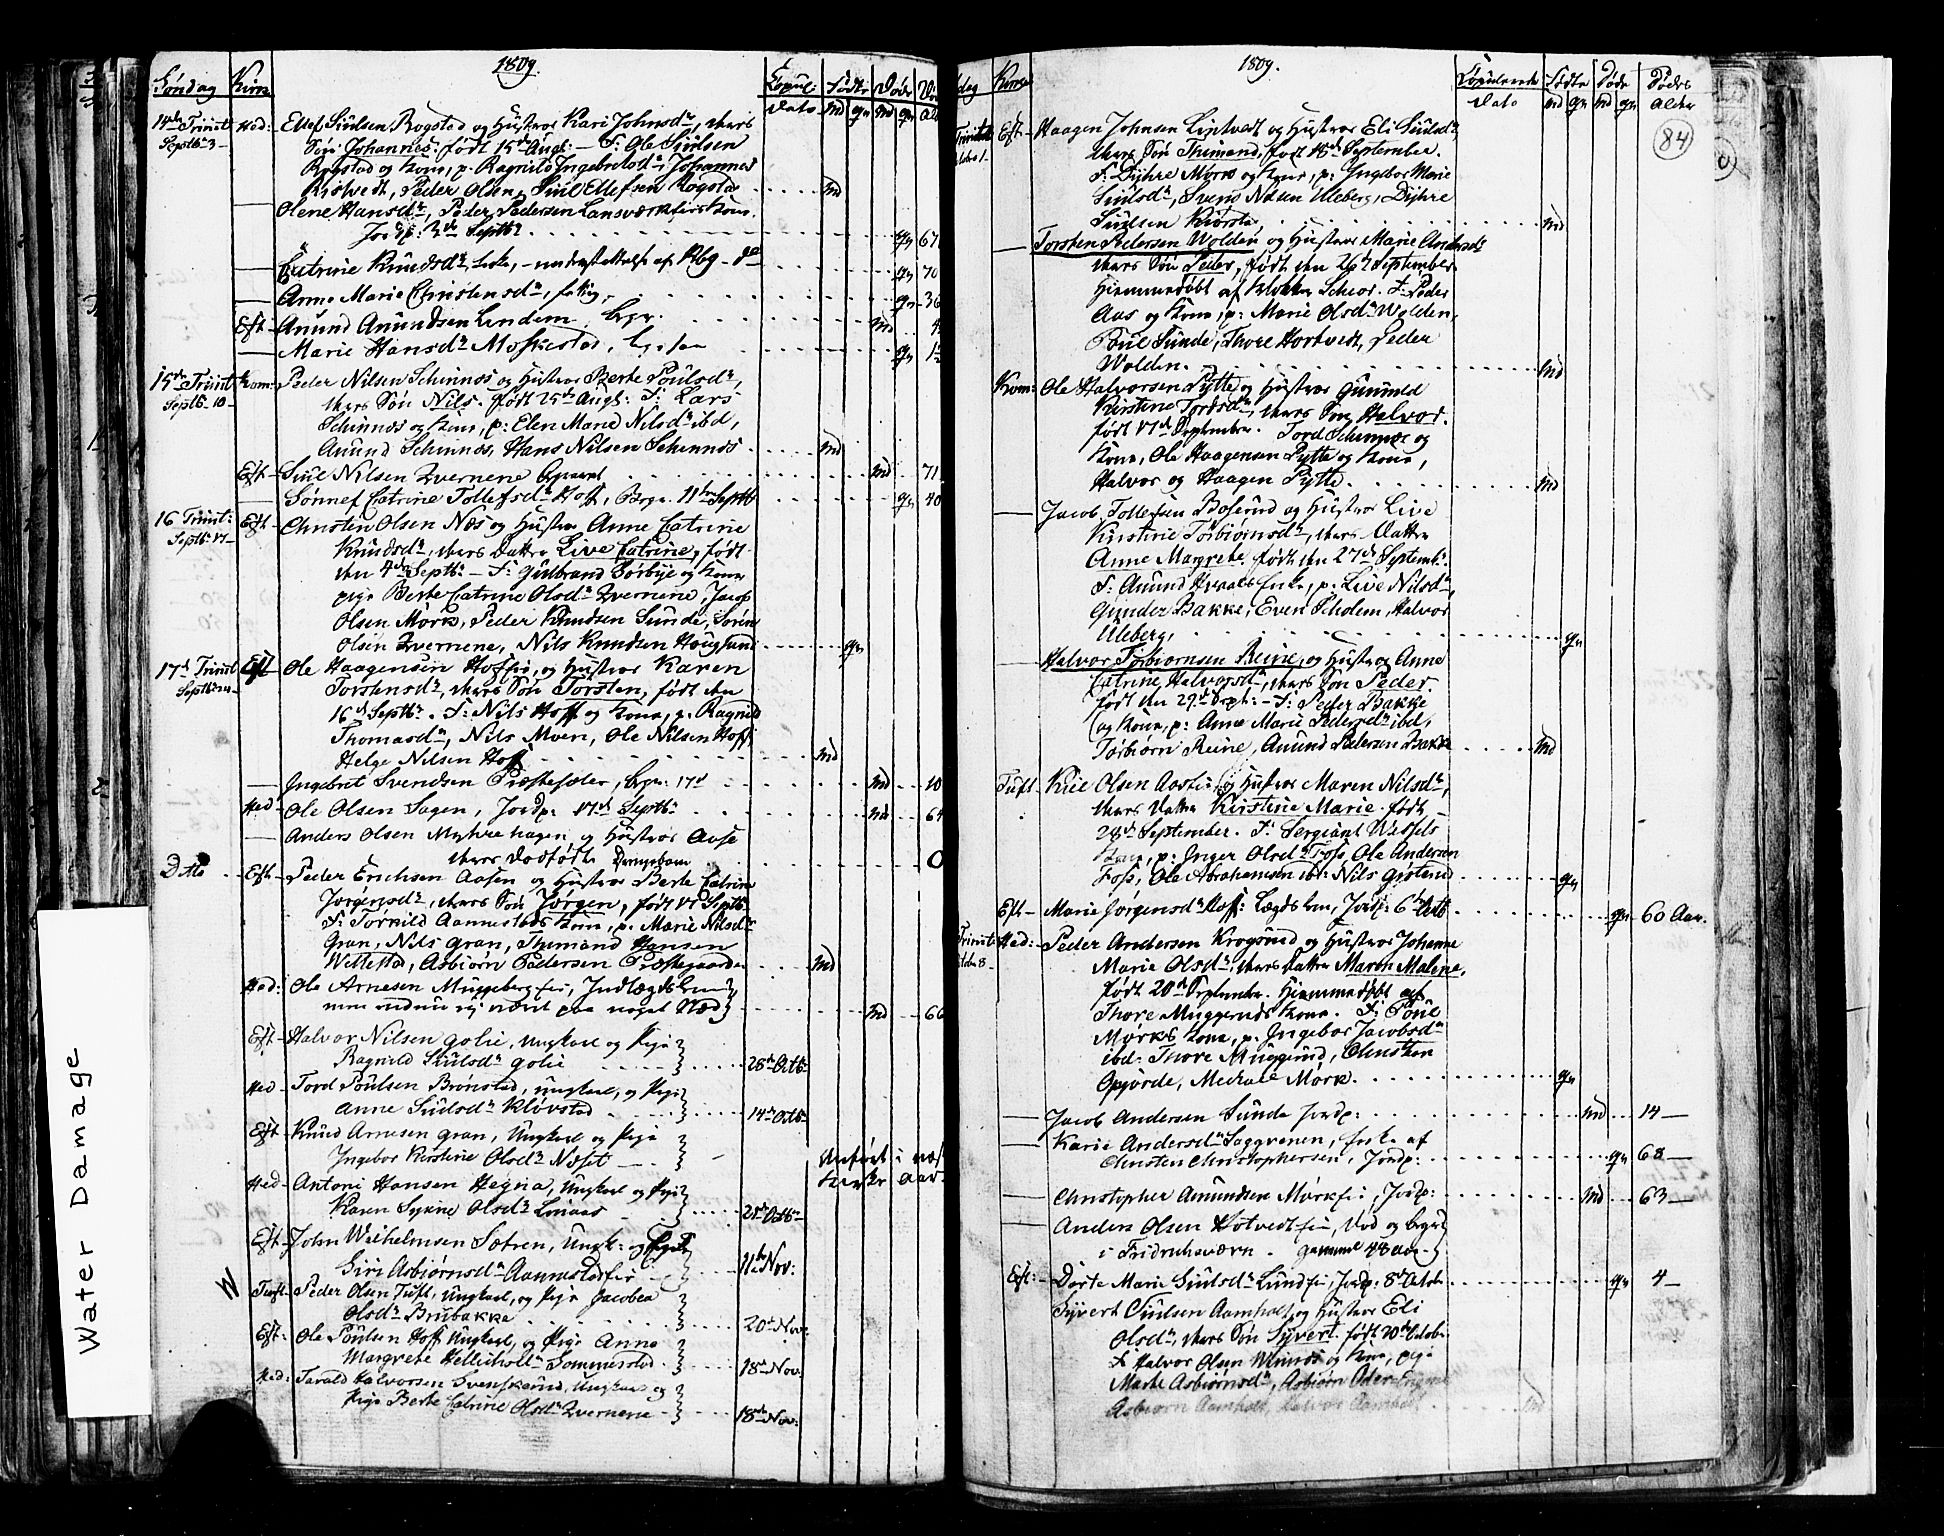 1809.
Søndag Kirke Copul: Fødte Døde
Dato Md Qn Md Qn
14de Trinit: Hed: Ellef Siulsen Rogstad og Hustroe Kari Johnsdr, deres
Septbr 3 Søn Johannes født 15de Augt: F: Ole Siulsen
Rogstad og Kone, p. Ragnild Ingebretsdr, Johannes
Peder Olsen, Siul Ellefsen Rogstad Md
Olene Hansdr, Peder Pedersen Kone
Jordp: Septbr Qn 67
Catrine Knudsdr af Qn 70
Anne Marie Christensdr, Qn 36
Eft Anund Anundsen Lindem Md
Marie Hansdr Moskestad, Qn
15de Trinit Kom: Peder Nilsen Schinnes og Hustroe Berte Poulsdr,
Septb. 10 deres Søn Nils. født 25de Augt: F: Lars
Schinnes og Kone, p: Elen Marie Nilsdr ibd,
Anund Schinnes, Hans Nilsen Schinnes Md
Eft Siul Nilsen Zvernene Md 71
Sønnef Catrine Tollefsdr Hoff, 11te Septb Qn 40
16 Trinit: Eft Christen Olsen Næs og Hustroe Anne Catrine
Septb. 17 Knudsdr, deres Datter Live Catrine, født
den 4de Septbr F: Gulbrand Sørbye og Kone
pige Berte Catrine Olsdr Zvernene, Jacob
Olsen Mørk, Peder Knudsen Sunde, Søren
Olsen Zvernene, Nils Knudsen Houglund Qn
17de Trinit Eft Ole Haagensen Hoffei, og Hustroe Karen
Septbr 24 Torstensdr, deres Søn Torsten, født den
16de Septbr. F: Nils Hoff og Kone, p. Ragnild
Thomasdr, Nils Moen, Ole Nilsen Hoff,
Helge Nilsen Hoff Md
Ingebret Svendsen 17de Md 10
Hed Ole Olsen Sagen, Jordp: 17de Septbr Md 64
Anders Olsen Myhre hagen og Hustroe Aase
deres dødfødte Drengebarn 0
Ditto Eft. Peder Erichsen Aasen og Hustroe Berte Catrine
Jørgensdr, deres Søn Jørgen, født Septb.
F: Tørrild Kone, p. Marie Nilsdr
Gran, Nils Gran, Thimand Hansen
Wettestad, Asbiørn Pedersen Md
Hed: Ole Arnesen Muggeberg ei,
Md 66
Eft Halvor Nilsen Golie, Ungkarl og Pige
Ragnild Siulsdr Golie 26de Octb
Hed Tord Poulsen Brønstad, Ungkarl, og Pige
Anne Siulsdr Kløvstad 14de Octb
Eft Knud Arnesen Gran, Ungkarl og Pige
Ingebor Kirstine Olsdr Næset Anført i næste
Hed Antoni Hansen Hegna, Ungkarl og Pige Kirke Aar.
Karen Olsdr 21de Octb
Eft John Wilhelmsen Sætren, Ungk: og Pige
Siri Asbiørnsdr 11te Nov:
Tuft Peder Olsen Tuft, Ungkarl, og Pige Jacobea
Olsdr Brubakke 20de Nov:
Eft: Ole Poulsen Hoff Ungkarl, og Pige Anne
Margrete Sommerstad 18de Nov:
Hed: Tarald Halvorsen Svenskerud, Ungkarl og
Pige Berte Catrine Olsdr Zvernene 18de Nov:
Water Damage
1809.
Kirke Copulerede Fødte Døde Dødes
Dato Md Qn Md Qn Alder
84
Trinitat: Eft Haagen Johnsen Lintvedt og Hustroe Eli Siulsdr
Octobr 1. deres Søn Thimand, født 18de September.
F: Dyhre Mørk og Kone, p: Ingebor Marie
Siulsdr, Svend Nilsen Uleberg, Dyhre
Siulsen Md
Torsten Pedersen Wolden og Hustroe Marie Andersdr
deres Søn Peder, født den 26de September
Hiemmedøbt af Klokker Scheor. F: Peder
Aas og Kone, p: Marie Olsdr Wolden,
Poul Sunde, Thore Hortvedt, Peder
Wolden. Md
Kom: Ole Halvorsen Pytte og Hustroe Gunnild
Kirstine Tordsdr, deres Søn, Halvor.
født 17de September. Tord Schinnes og
Kone, Ole Haagensen Pytte og Kone,
Halvor og Haagen Pytte. Md
Jacob Tollefsen Boserud og Hustroe Live
Kirstine Torbiørnsdr, deres Datter
Anne Margrete, født den 27de Septembr.
F: Anund Hvaals Enke, p. Live Nilsdr,
Gunder Bakke, Even Scholem, Halvor
Uleberg, Qn
Halvor Torbiørnsen Reine, og Hustroe Anne
Catrine Halvorsdr, deres Søn Peder.
født den 29de Septbr: F: Peder Bakke
og Kone, p: Anne Marie Pedersdr ibd,
Torbiørn Reine, Anund Pedersen Bakke Md
Tuft Olsen og Hustroe Maren Nilsdr,
deres Datter Kirstine Marie. født
28de September. F: Sergiant Wessels
Kone, p: Inger Olsdr Foss, Ole Andersen
Foss, Ole Abrahamsen ibd: Nils Qn
Eft Marie Jørgensdr Hoff: Jordp: 6te Octb Qn 60 Aar.
Trinit: Hed: Peder Andersen Krogsrud og Hustroe Johanne
Octobr 8 Marie Olsdr, deres Datter Maren Malene,
født 20de September. Hiemmedøbt af
Thore Muggeruds Kone. F: Poul
Mørks Kone, p. Ingebor Jacobsdr
ibd. Thore Muggerud, Christen
Opgjorde, Michael Mørk. Qn
Jacob Andersen Sunde Jordp: Md 14
Karie Andersdr Saggrenen, Enke af
Christen Christophersen, Jordp: Qn 68
Christopher Amundsen Mørk ei, Jordp: Md 63
Anders Olsen Hotvedt ei, Død og begr.
i Fridrichsværn. gammel 48 aar
Eft: Dorte Marie Siulsdr Lund ei, Jordp: 8de Octobr Qn 4
Syvert Siulsen Aamholt, og Hustroe Eli
Olsdr, deres Søn Syvert. født Octobr
F: Halvor Olsen og Kone, pige
Marte Asbiørnsdr, Asbiørn
Asbiørn Aamholt, Halvor Aamholt Md